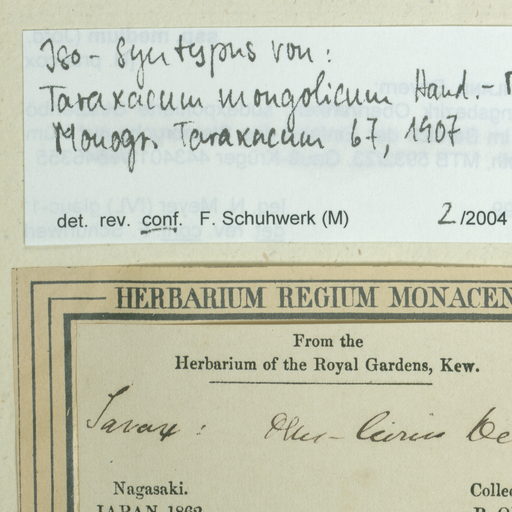 Iso-Syntypus von:
Taraxacum mongolicum Hand.-
Monogr. Taraxacum 67, 1907
det. rev. conf. F. Schuhwerk (M) 2/2004
HERBARIUM REGIUM MONACEN
From the
Herbarium of the Royal Gardens, Kew.
Tarax: Dens-
Nagasaki. Collec
JAPAN, 1862.